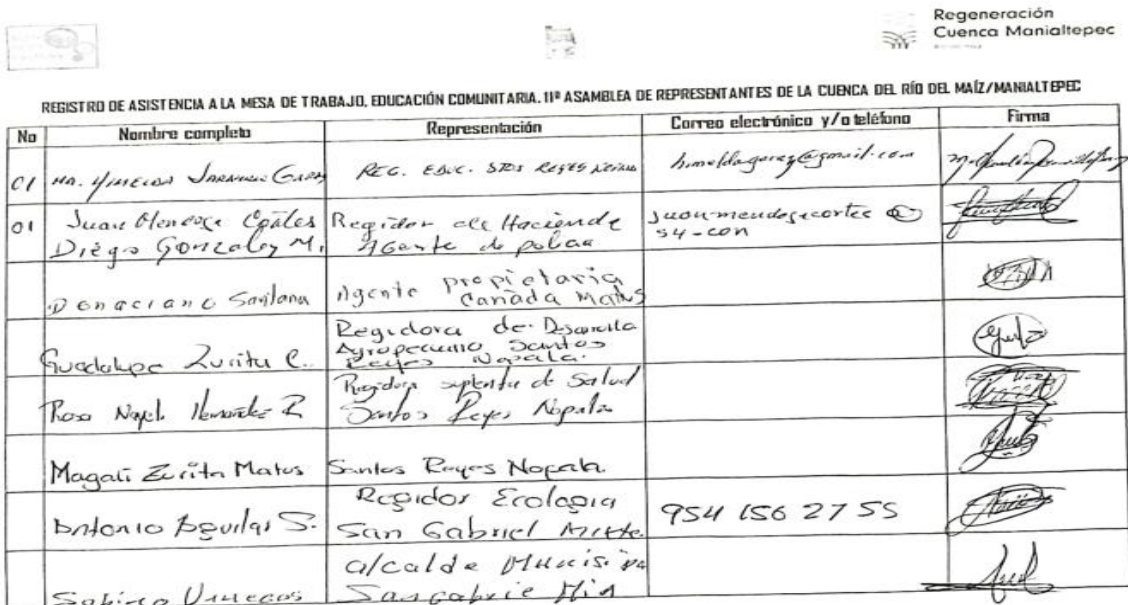 Regeneración
Cuenca Manialtepec
REGISTRO DE ASISTENCIA A LA MESA DE TRABAJO, EDUCACIÓN COMUNITARIA. 11ª ASAMBLEA DE REPRESENTANTES DE LA CUENCA DEL RÍO DEL MAÍZ/MANIALTEPEC
No Nombre completo Representación Correo electrónico y/o teléfono Firma
01 MA. HIMELDA REG. EDUC. STOS REYES NOPALA
01 Juan Mendoza Cortes Regidor de Hacienda
Diego Gonzalez M. Agente de policia
Donaciano Santana Agente propietario
Cañada Matus
Guadalupe Zurita C. Regidora de Desarrollo
Agropecuario Santos
Reyes Nopala.
Rosa Nayeli Hernández R Regidora suplente de Salud
Santos Reyes Nopala
Magali Zurita Matus Santos Reyes Nopala
Antonio Aguilar S. Regidor Ecologia
San Gabriel 954 156 27 55
alcalde
Sabino